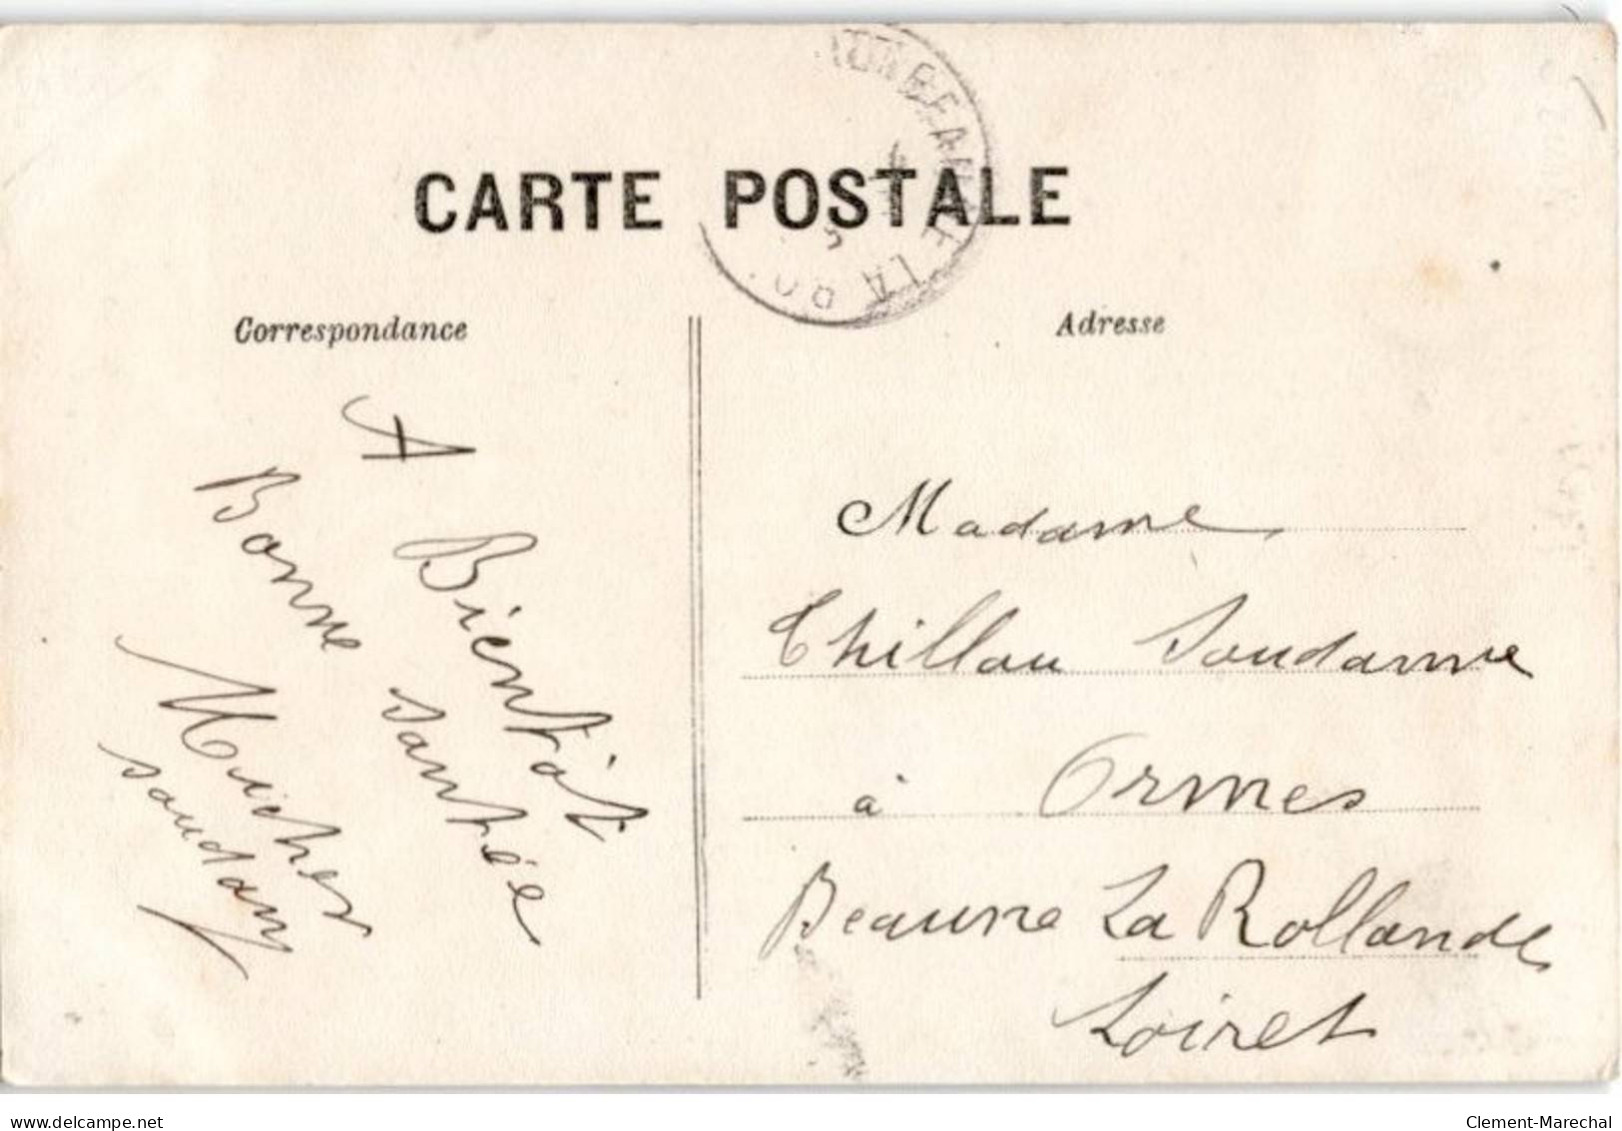 CARTE POSTALE
BEAUNE LA RO
Correspondance
Adresse
A Bientôt
Bonne Santée
Michel
Soudan
Madame
Thillou Soudanne
à Ormes
Beaune La Rollande
Loiret
www.delcampe.net
Clement-Marechal